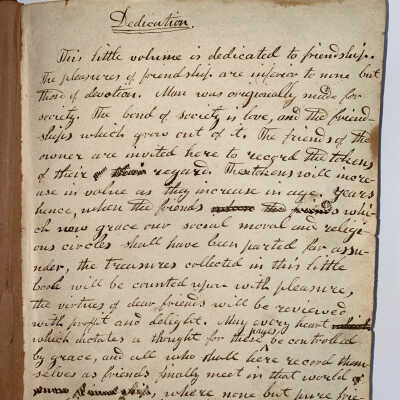 Dedication.
This little volume is dedicated to friendship.
The pleasures of friendship are inferior to none but
those of devotion. Man was origionally made for
society. The bond of society is love, and the friend-
ships which grow out of it. The friends of the
owner are invited here to record the tokens
of their regard. These tokens will incre
ase in value as they increase in age. Years
hence, when the friends whi-
ch now grace our social moral and religi-
ous circles shall have been parted far assu-
nder, the treasures collected in this little
book will be counted upon with pleasure,
the virtues of dear friends will be reviewed
with profit and delight. May every heart
which dictates a thought for these pages be controlled
by grace, and all who shall here record them-
selves as friends finally meet in that world of
where none but pure frie